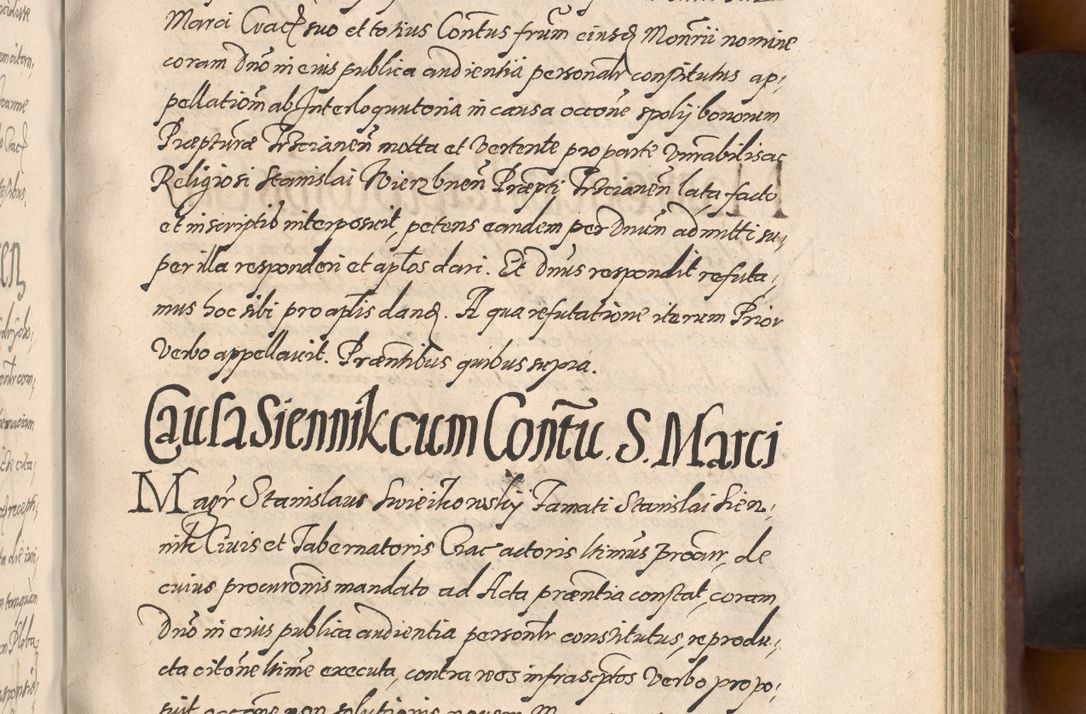 Marci Crac suo et totius Contus frum eiusq Monrii nomine
coram Dno in eius publica audientia personalr constitutus ap,
pellationem ab Interloquutoria in causa occone spolij bonorum
Præpturæ Trscianen motta et vertente pro parte Vnrabilis ac
Religiosi Stanislai Wierzbnen Præpti Trscianen lata facto
et in scriptis interposuit, petens eandem per Dnum admitti su,
per illa responderi et aptos dari. Et Dnus respondit refuta,
mus hoc sibi pro aptis danq. A qua refutatione iterum Prior
Verbo appellauit. Præntibus quibus supra.
Causa Siennik cum Contu. S. Marci
Magr Stanislaus Swieikowskij Famati Stanislai Sien,
nik Ciuis et Tabernatoris Crac actoris ltimus Procur, de
cuius procuronis mandato ad Acta præntia constat, coram
Dno in eius publica audientia personlr constitutus, reprodu,
cta citone ltime executa, contra nos infrascptos Verbo propo,
suit occone non solutionis